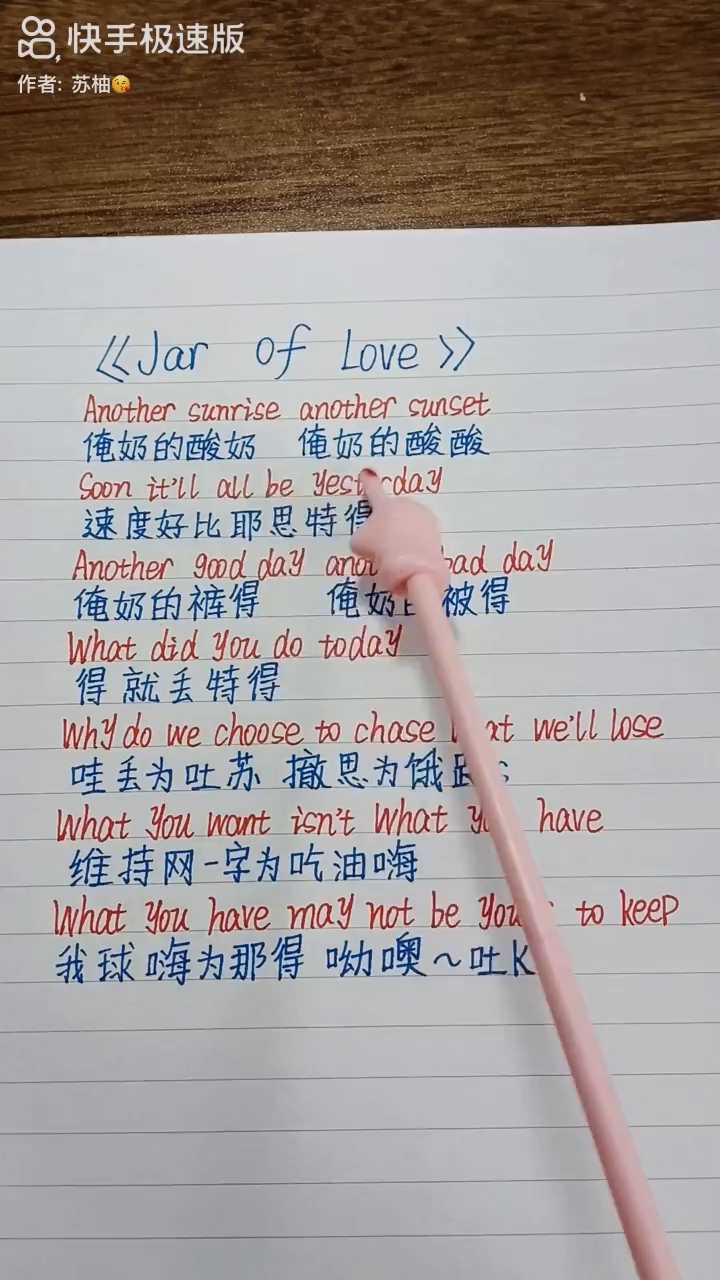 快手极速版
作者: 苏柚😘
《Jar of Love》
Another sunrise another sunset
俺奶的酸奶 俺奶的酸酸
Soon it'll all be yesterday
速度好比耶思特得
Another good day bad day
俺奶的裤得 俺奶 被得
What did you do today
得就丢特得
Why do we choose to chase we'll lose
哇丢为吐苏 撤思为饿
What you want isn't What have
维持网一字为吃油嗨
What you have may not be to keep
我球嗨为那得 呦噢~吐K